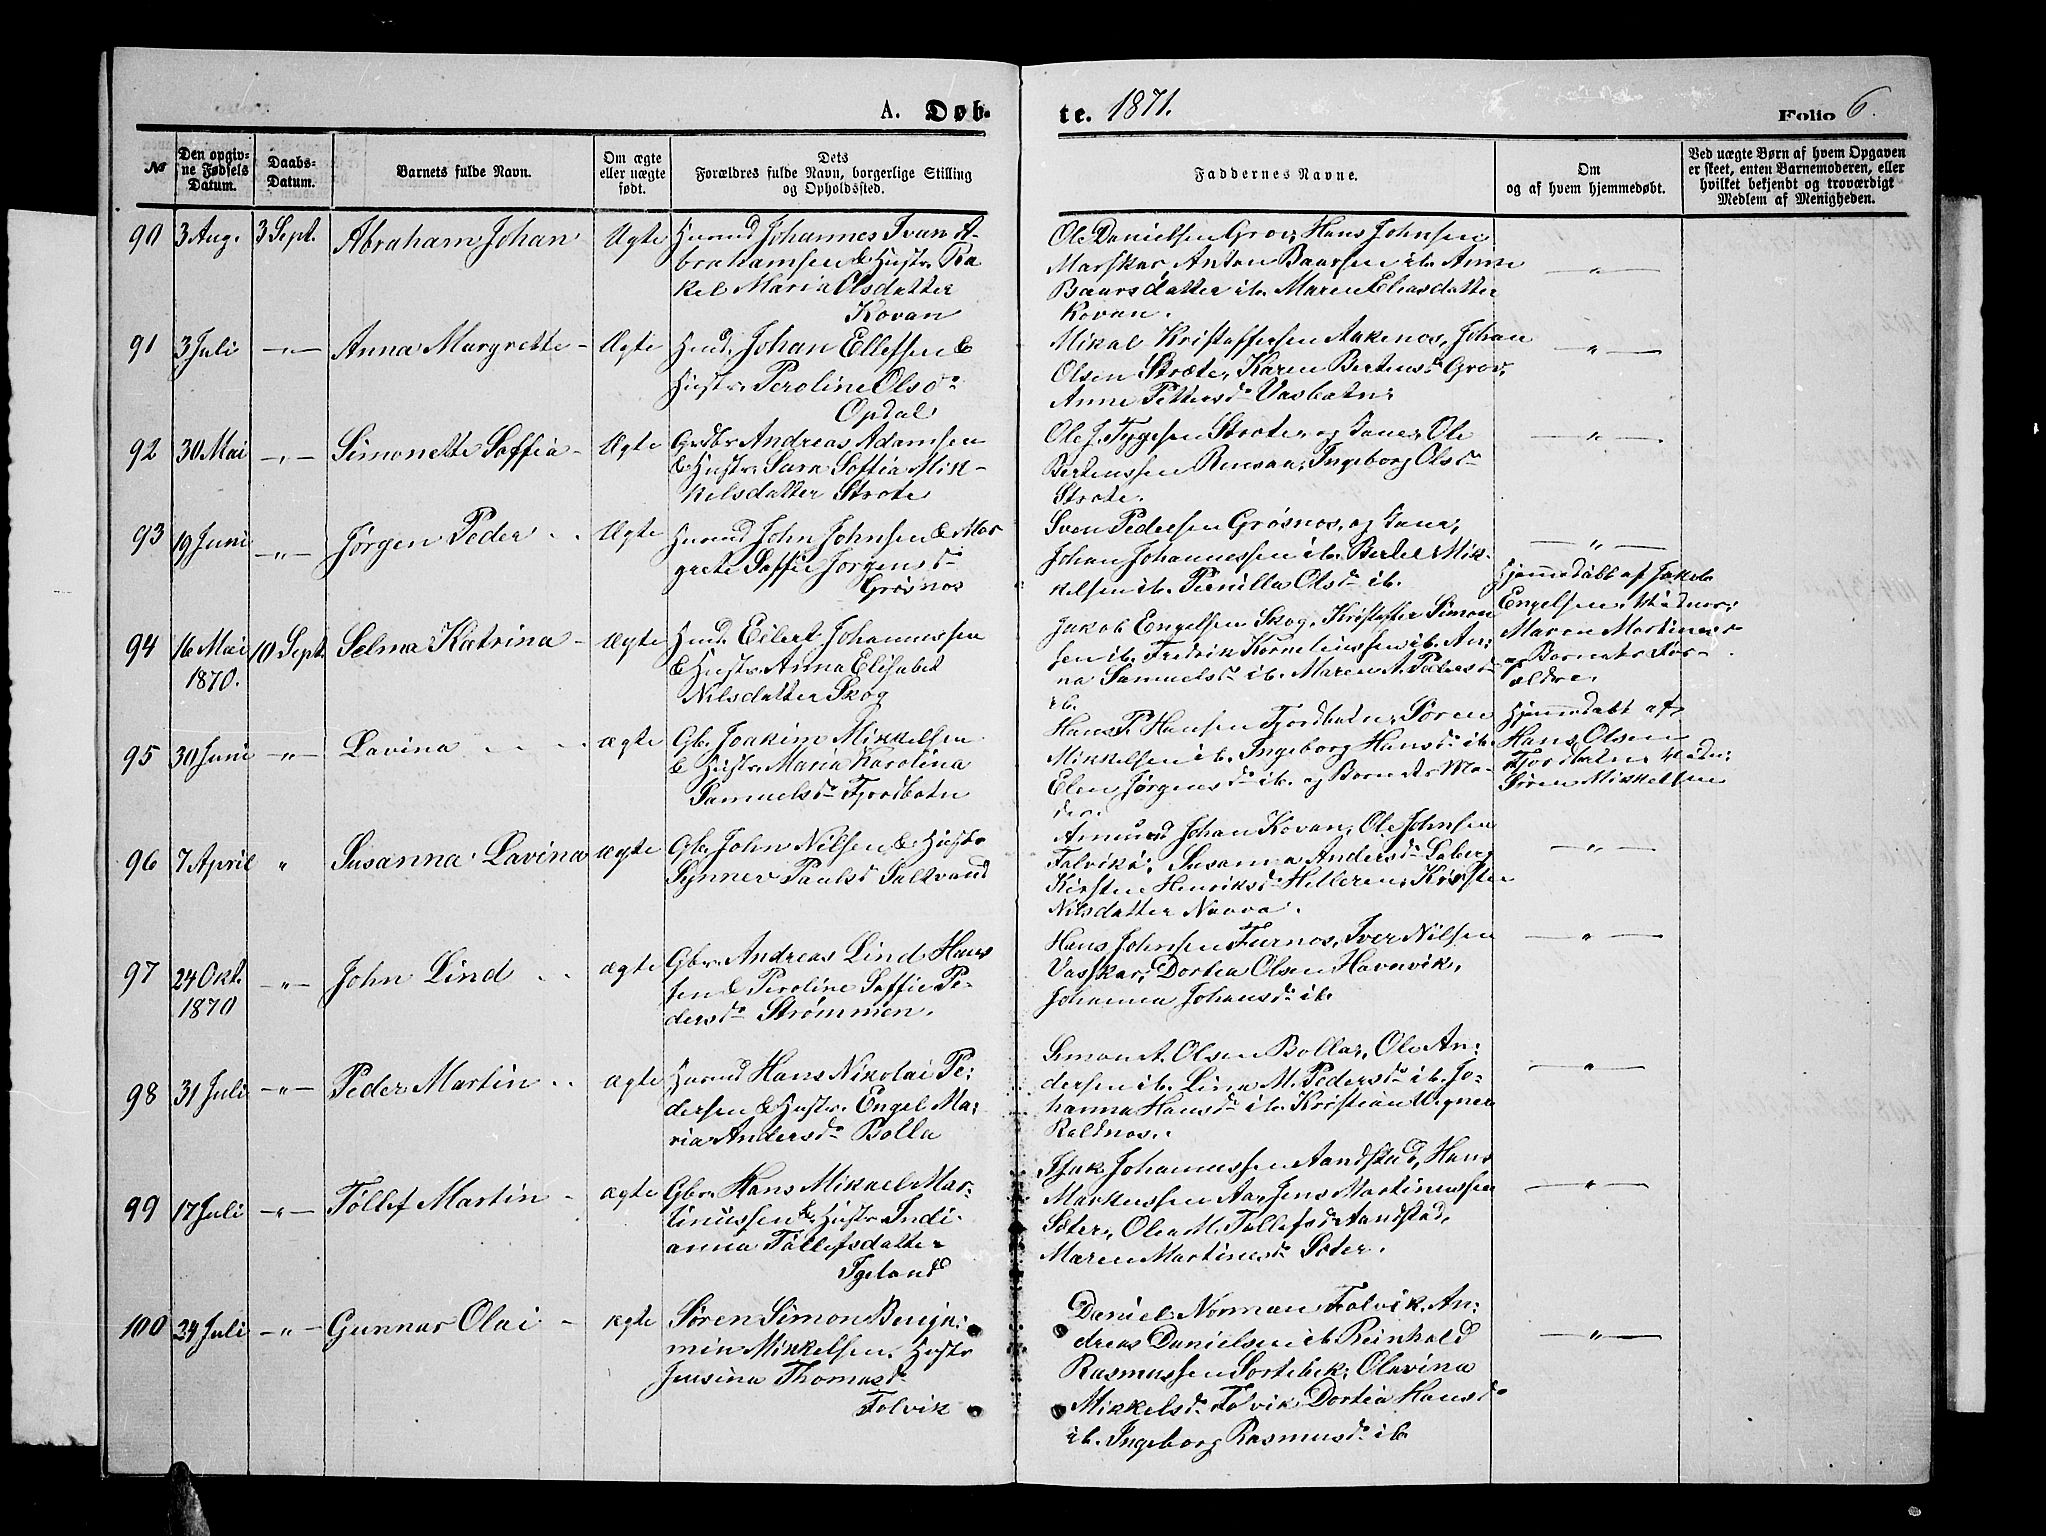 A. Døb-
te. 1871.
Folio 6.
№
Den opgiv-
ne Fødsels
Datum.
Daabs-
Datum.
Barnets fulde Navn.
Om ægte
eller uægte
født.
Dets
Forældres fulde Navn, borgerlige Stilling
og Opholdssted.
Faddernes Navne.
Om
og af hvem hjemmedøbt.
Ved uægte Børn af hvem Opgaven
er skeet, enten Barnemoderen, eller
hvilket bekjendt og troværdigt
Medlem af Menigheden.
90 3 Aug. 3 Sept. Abraham Johan Ægte
Johannes Ivan A-
brahamsen & Hustr. Ra
kel Maria Olsdatter
Kovan
Ole Danielsen Grov, Hans Johnsen
Marskar Anton Baarsen ib. Anne
Baarsdatter ib. Maren Eliasdatter
Kovan.
91 3 Juli -"- Anna Margrette - Ægte
Husmd. Johan Ellefsen &
Hustr. Peroline Olsd.
Opdal
Mikal Kristoffersen Aakenes, Johan
Olsen Strøte, Karen Bertensd. Grov,
Anne Pettersd. Vasbotn.
92 30 Mai -"- Simonette Soffia - Ægte
Gdbr Andreas Adamsen
& Hustr. Sara Soffia Mik-
kelsdatter Strøte
Ole J. Tygesen Strøte, og Jane, Ole
Bertenssen Rensaa, Ingeborg Olsd.
Strøte.
93 19 Juni -"- Jørgen Peder Ægte
John Johnsen & Mar
grete Soffie Jørgensd.
Grøsnos
Sven Pedersen Grøsnos, og Jane,
Johan Johannessen ib. Bertel Mik-
kelsen ib. Pernilla Olsd. ib.
94 16 Mai 10 Sept. Selma Katrina - Ægte
1870.
Husmd. Eilert Johannessen
& Hustr. Anna Elisabet
Nilsdatter Skog
Jakob Engelsen Skog, Kristoffer Simon
sen ib. Fredrik Korneliussen ib. An-
na Samuelsd. ib. Maren A. Pedersd.
ib.
Hjemmedøbt af Jakob
Engelsen, Vidner;
Maren
og Barnets For-
ældre.
95 30 Juni -"- Lavina ægte
Gbr. Joakim Mikkelsen
& Hustr. Maria Karolina
Samuelsd. Fjordbotn
Hans P. Hansen Fjordbotn, Søren
Mikkelsen ib. Ingeborg Hansd. ib.
Elen Jørgensd. ib. og Barnets Mo-
der.
Hjemmedøbt af
Hans Olsen
Fjordbotn Vidn:
Søren Mikkelsen
96 7 April " Susanna Lavina ægte
Gbr. John Nilsen & Hustr
Synnev Paulsd. Saltvand
Amund Johan Kovan, Ole Johnsen
Folvik, Susanna Andersd. Soberg
Kirsten Henriksd. Helleren, Kirsten
Nilsdatter
97 24 Okt. -"- John Lind ægte
1870
Gbr. Andreas Lind Han
sen & Peroline Soffie Pe-
dersd. Strømmen.
Hans Johnsen Furnos, Iver Nilsen
Vasskar, Dortea Olsen Havnvik,
Johanna Johansd. ib.
98 31 Juli -"- Peder Martin ægte
Hans Nikolai Pe-
dersen & Hustr. Engel Ma-
ria Andersd. Bolla
Simon A. Olsen Bolla, Ole An-
dersen ib. Lina M. Pedersd. ib. Jo-
hanna Hansd. ib. Kristian
99 17 Juli -"- Tøllef Martin - ægte
Gbr. Hans Mikael Mar-
tinussen & Hustr Indi-
anna Tøllefsdatter
Igeland
Isak Johannessen Aandstad, Hans
Markussen Aa, Jens Martinussen
Søter, Olea M. Tøllefsd. Aandstad,
Maren Martinesd. Søter.
100 24 Juli -"- Gunnar Olai - ægte
Søren Simon Benja-
min Mikkelsen. Hustr
Jensina Thomasd.
Folvik
Daniel Norman Folvik, An-
dreas Danielsen ib. Reinhold
Rasmussen Sortebek, Olavina
Mikkelsd. Folvik Dortea Hansd.
ib. Ingeborg Rasmusd. ib.